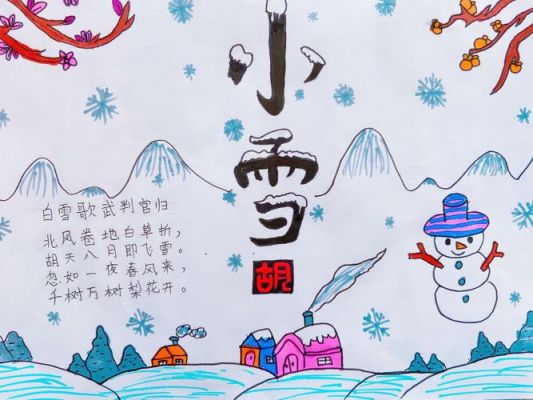 小雪
胡
白雪歌武判官归
北风卷地白草折，
胡天八月即飞雪。
忽如一夜春风来，
千树万树梨花开。